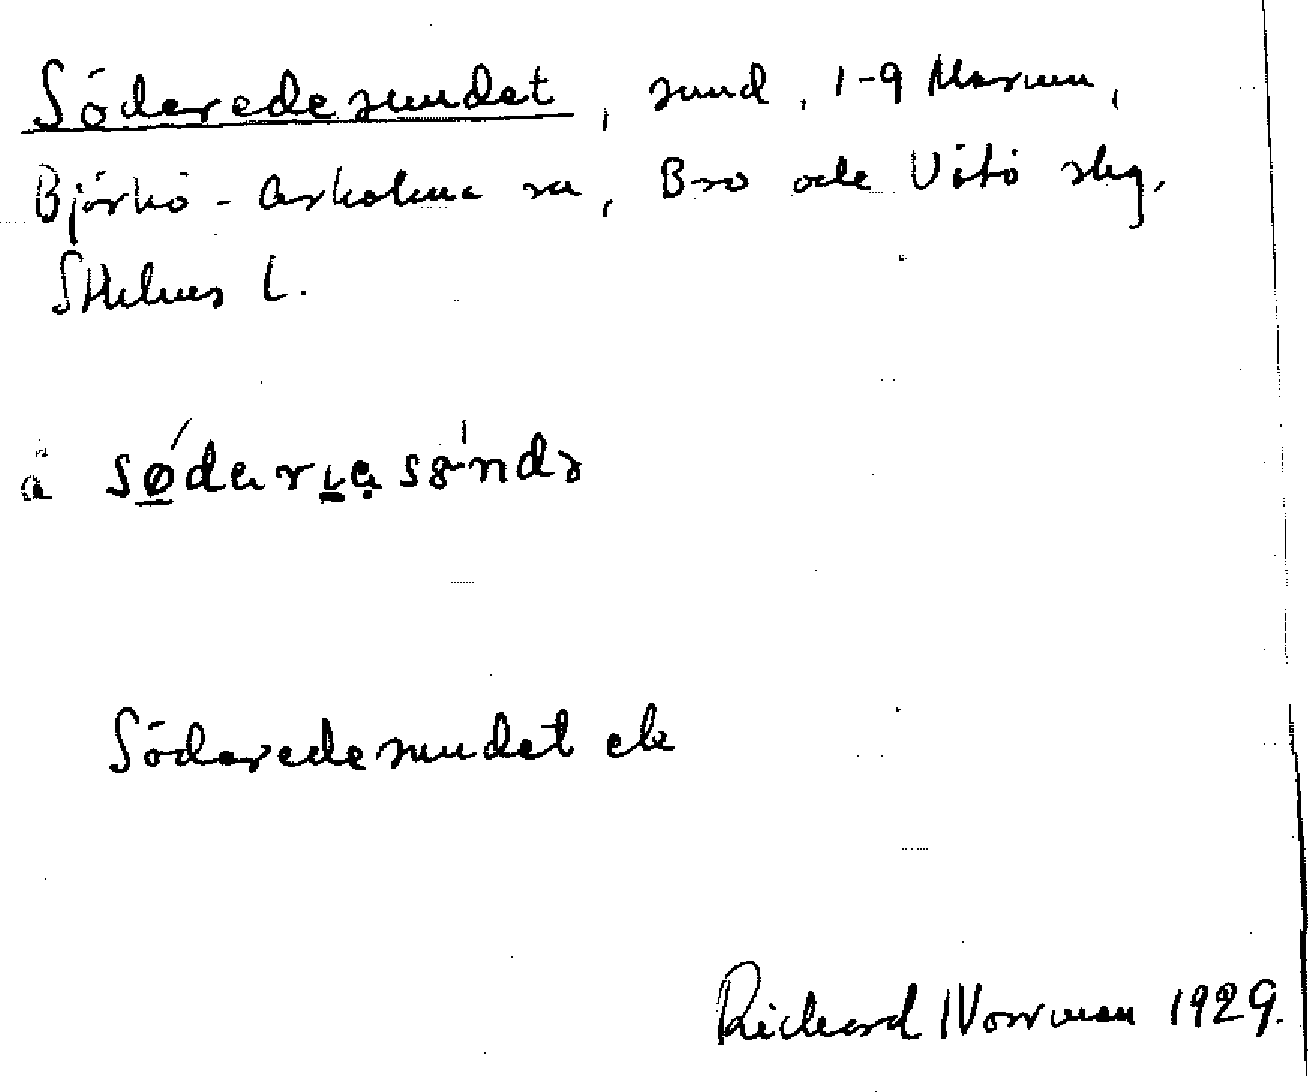 Söderedesundet, sund, 1-9 Marum,
Björkö-Arholma sn, Bro och Vätö slg,
Sthlms L.
Söderedesundet ek
Richard Norrman 1929.